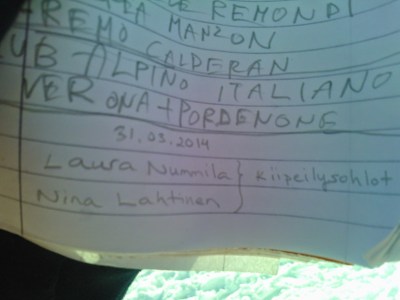 REMONDI
REMO MANZON
CALDERAN
UB ALPINO ITALIANO
VERONA + PORDENONE
31.03.2014
Laura Nummila } Kiipeilysohlot
Nina Lahtinen